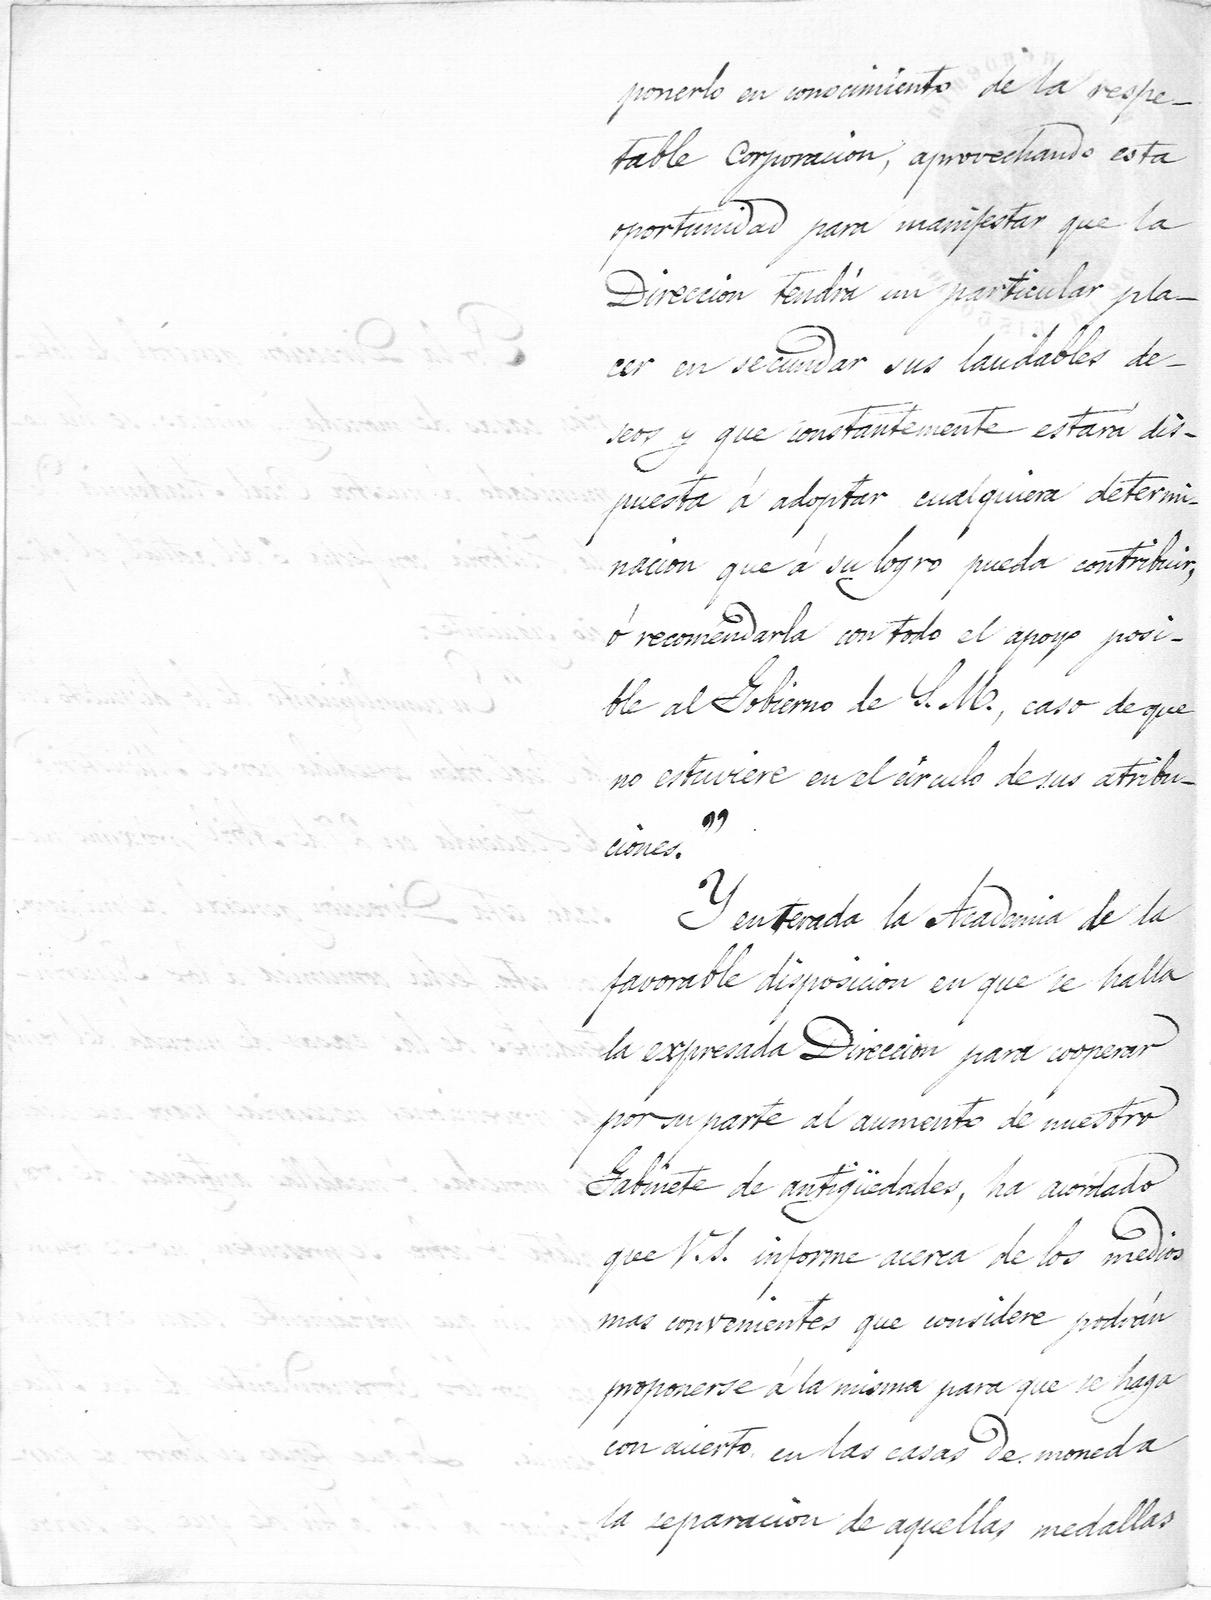 ponerlo en conocimiento de la respe-
table Corporacion, aprovechando esta
oportunidad para manifestar que la
Direccion tendrá un particular pla-
cer en secundar sus laudables de-
seos y que constantemente estará dis-
puesta á adoptar cualquiera determi-
nacion que á su logro pueda contribuir,
ó recomendarla con todo el apoyo posi-
ble al Gobierno de S. M., caso de que
no estuviere en el círculo de sus atribu-
ciones."
Y enterada la Academia de la
favorable disposicion en que se halla
la expresada Direccion para cooperar
por su parte al aumento de nuestro
Gabinete de antigüedades, ha acordado
que V. S. informe acerca de los medios
mas convenientes que considere podrán
proponerse á la misma para que se haga
con acierto en las casas de moneda
la separacion de aquellas medallas